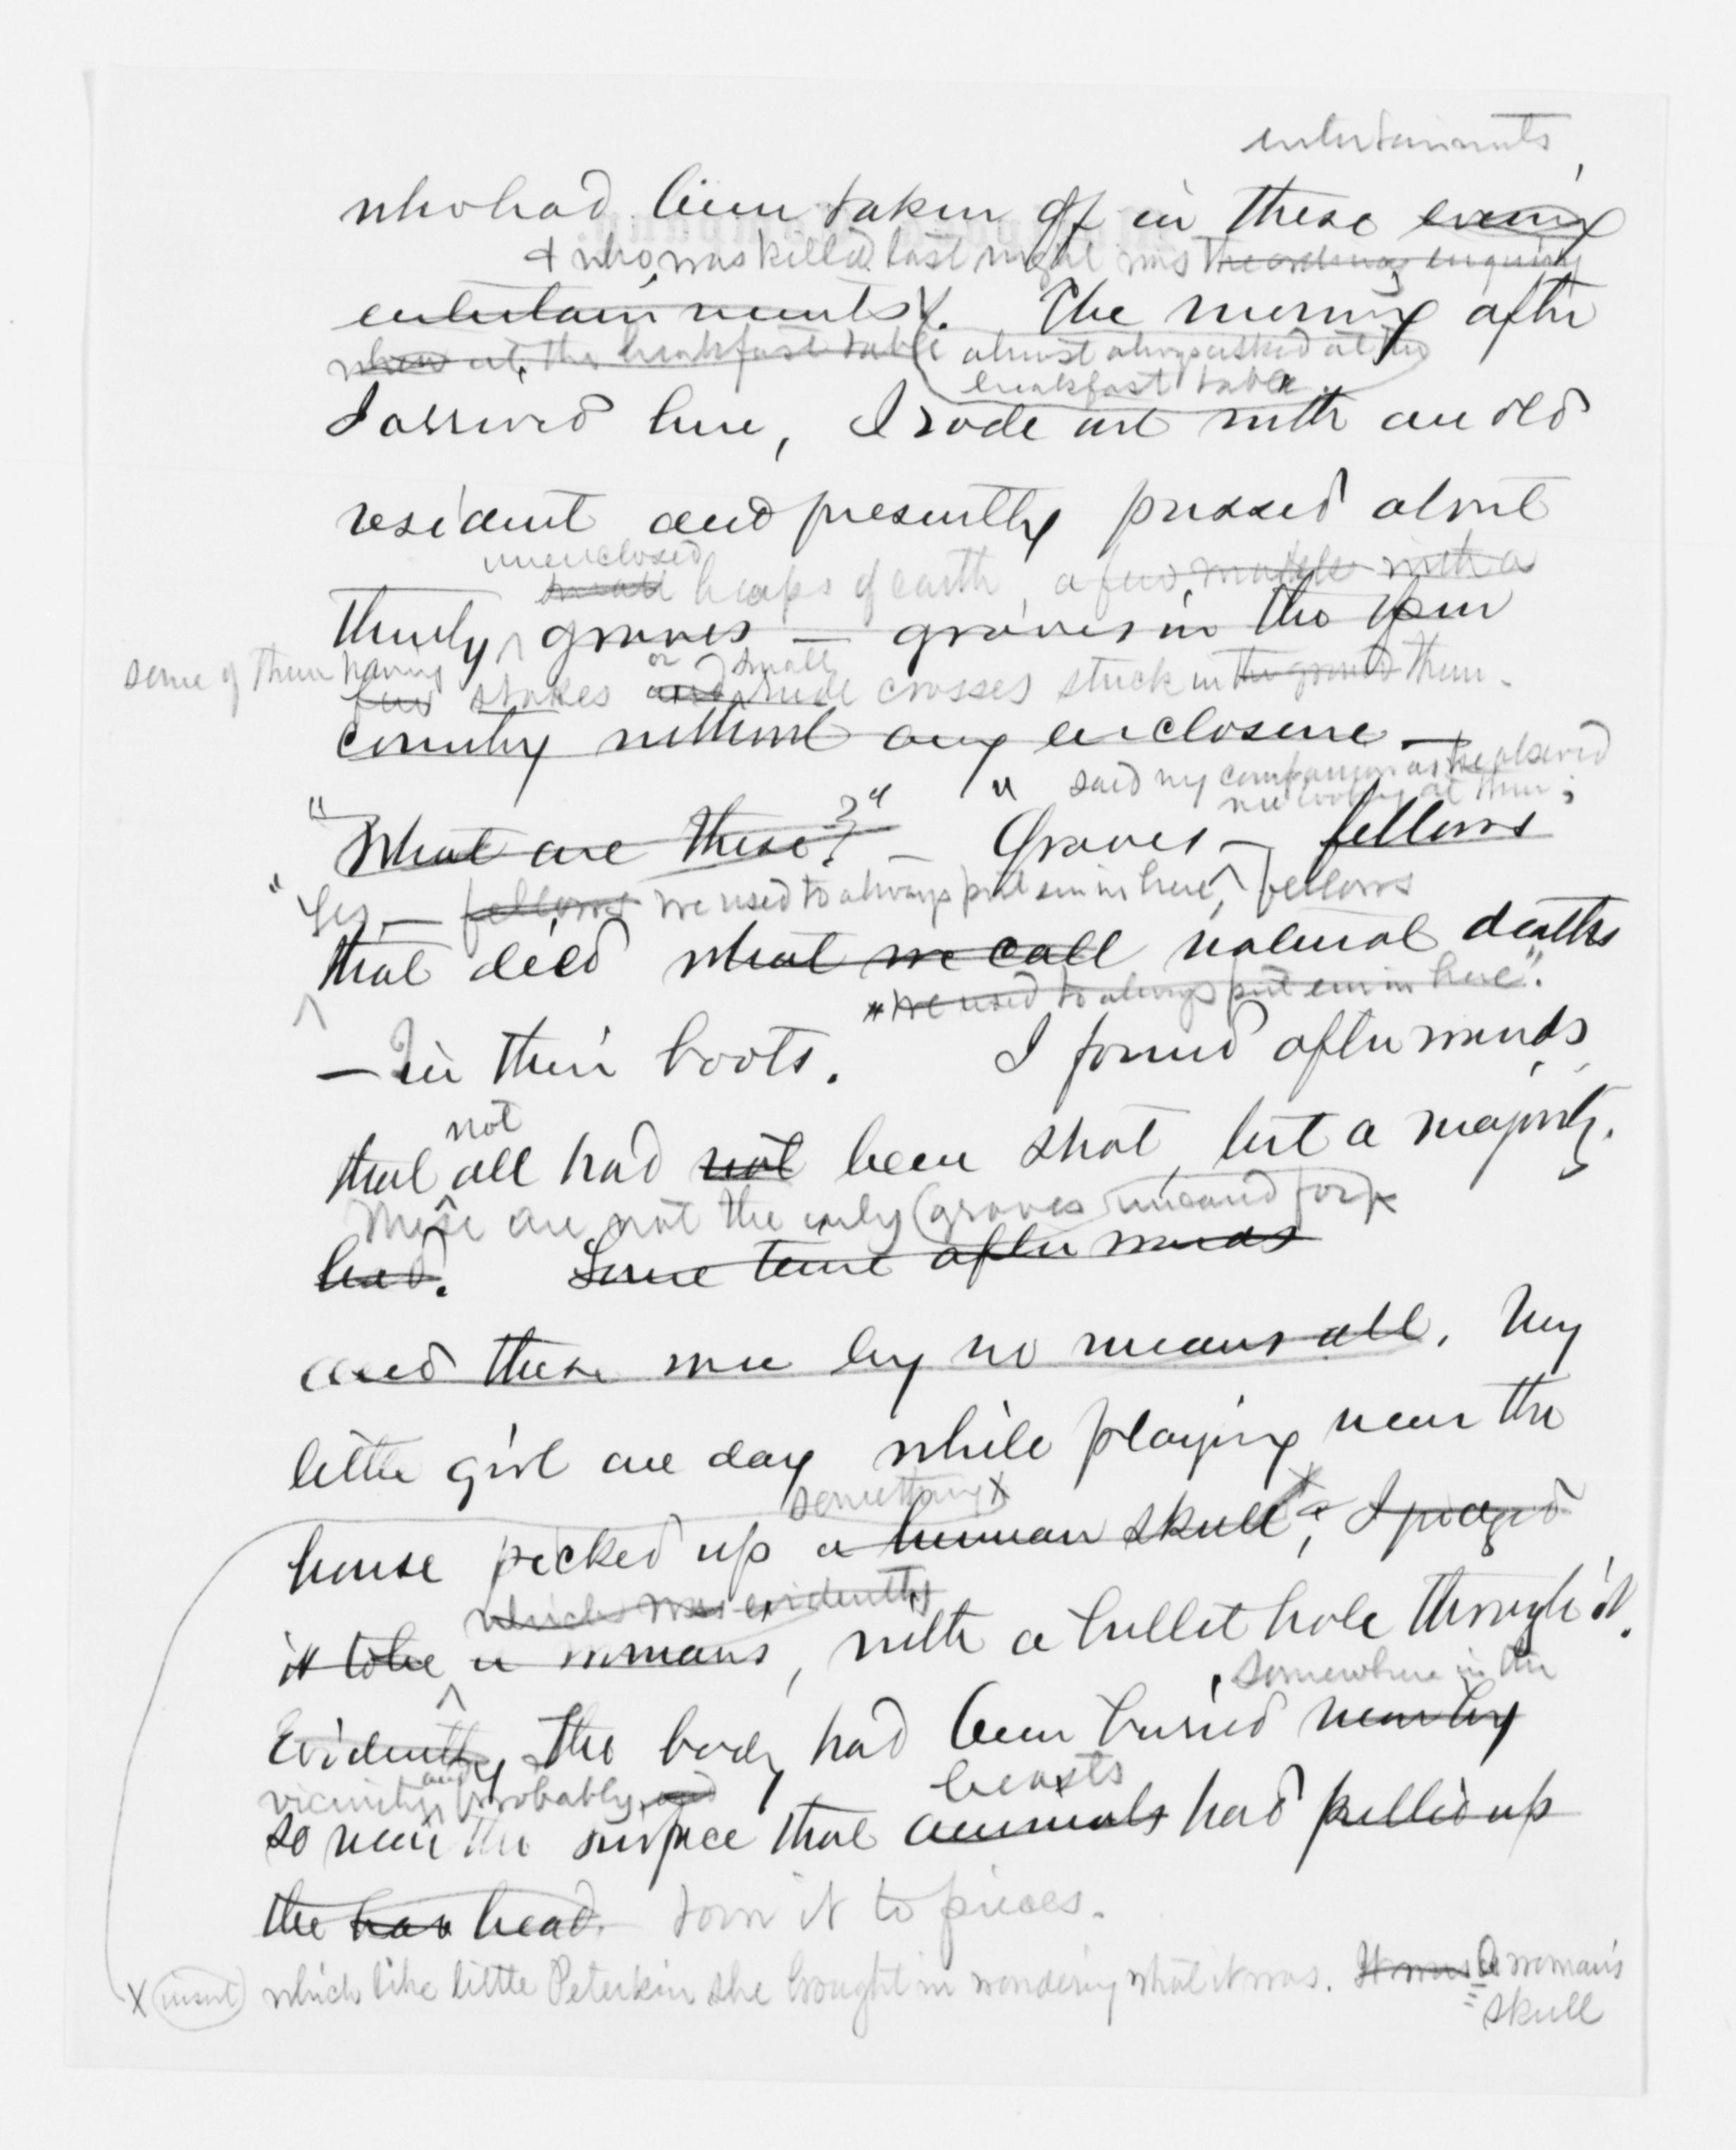 entertainments,
who had been taken off in these evening
& who was killed last night was the ordinary inquiry
entertainments. The morning after
when at the breakfast table almost always asked at the
breakfast table.
I arrived here, I rode out with an old
resident and presently passed about
unenclosed
small heaps of earth, a few marked with a
thirty graves — graves in the open
some of them having
few stakes and or small rude crosses stuck in the ground them.
country without any enclosure —
" said my companion as he observed
me looking at them;
"What are these?" — Graves — fellows
"Yes — fellows we used to always put em in here, fellows
that died what we call natural deaths
"we used to always put em in here".
— In their boots. I found afterwards
not
that all had not been shot, but a majority.
These are not the only graves uncared for
had. Some time afterwards
and these were by no means all. My
little girl one day while playing near the
something X
house picked up a human skull, I judged
which was evidently
it to be a womans, with a bullet hole through it.
somewhere in the
Evidently, the body had been buried near by
vicinity, and probably and
beasts
so near the surface that animals had pulled up
the head. torn it to pieces.
X (insert) which like little Peterkin she brought in wondering what it was. It was A woman's
skull